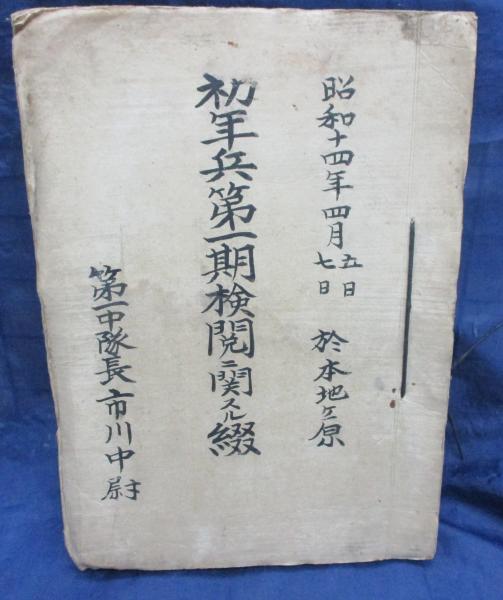 昭和十四年四月五日七日 於本地ヶ原
初年兵第一期検閲ニ関スル綴
第一中隊長市川中尉